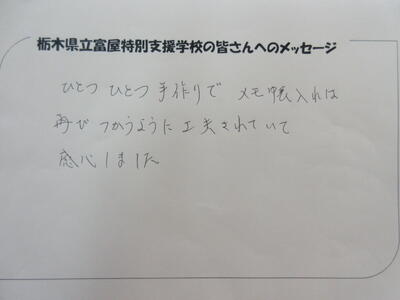 栃木県立富屋特別支援学校の皆さんへのメッセージ
ひとつ ひとつ 手作りで メモ帳入れは
再び つかうように 工夫されていて
感心しました